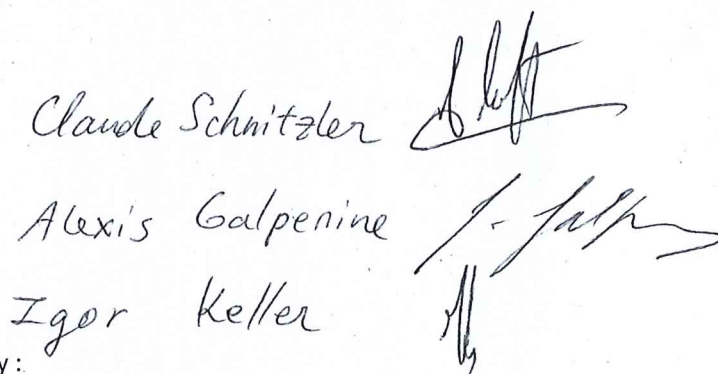 Claude Schnitzler
Alexis Galpenine
Igor Keller
y: